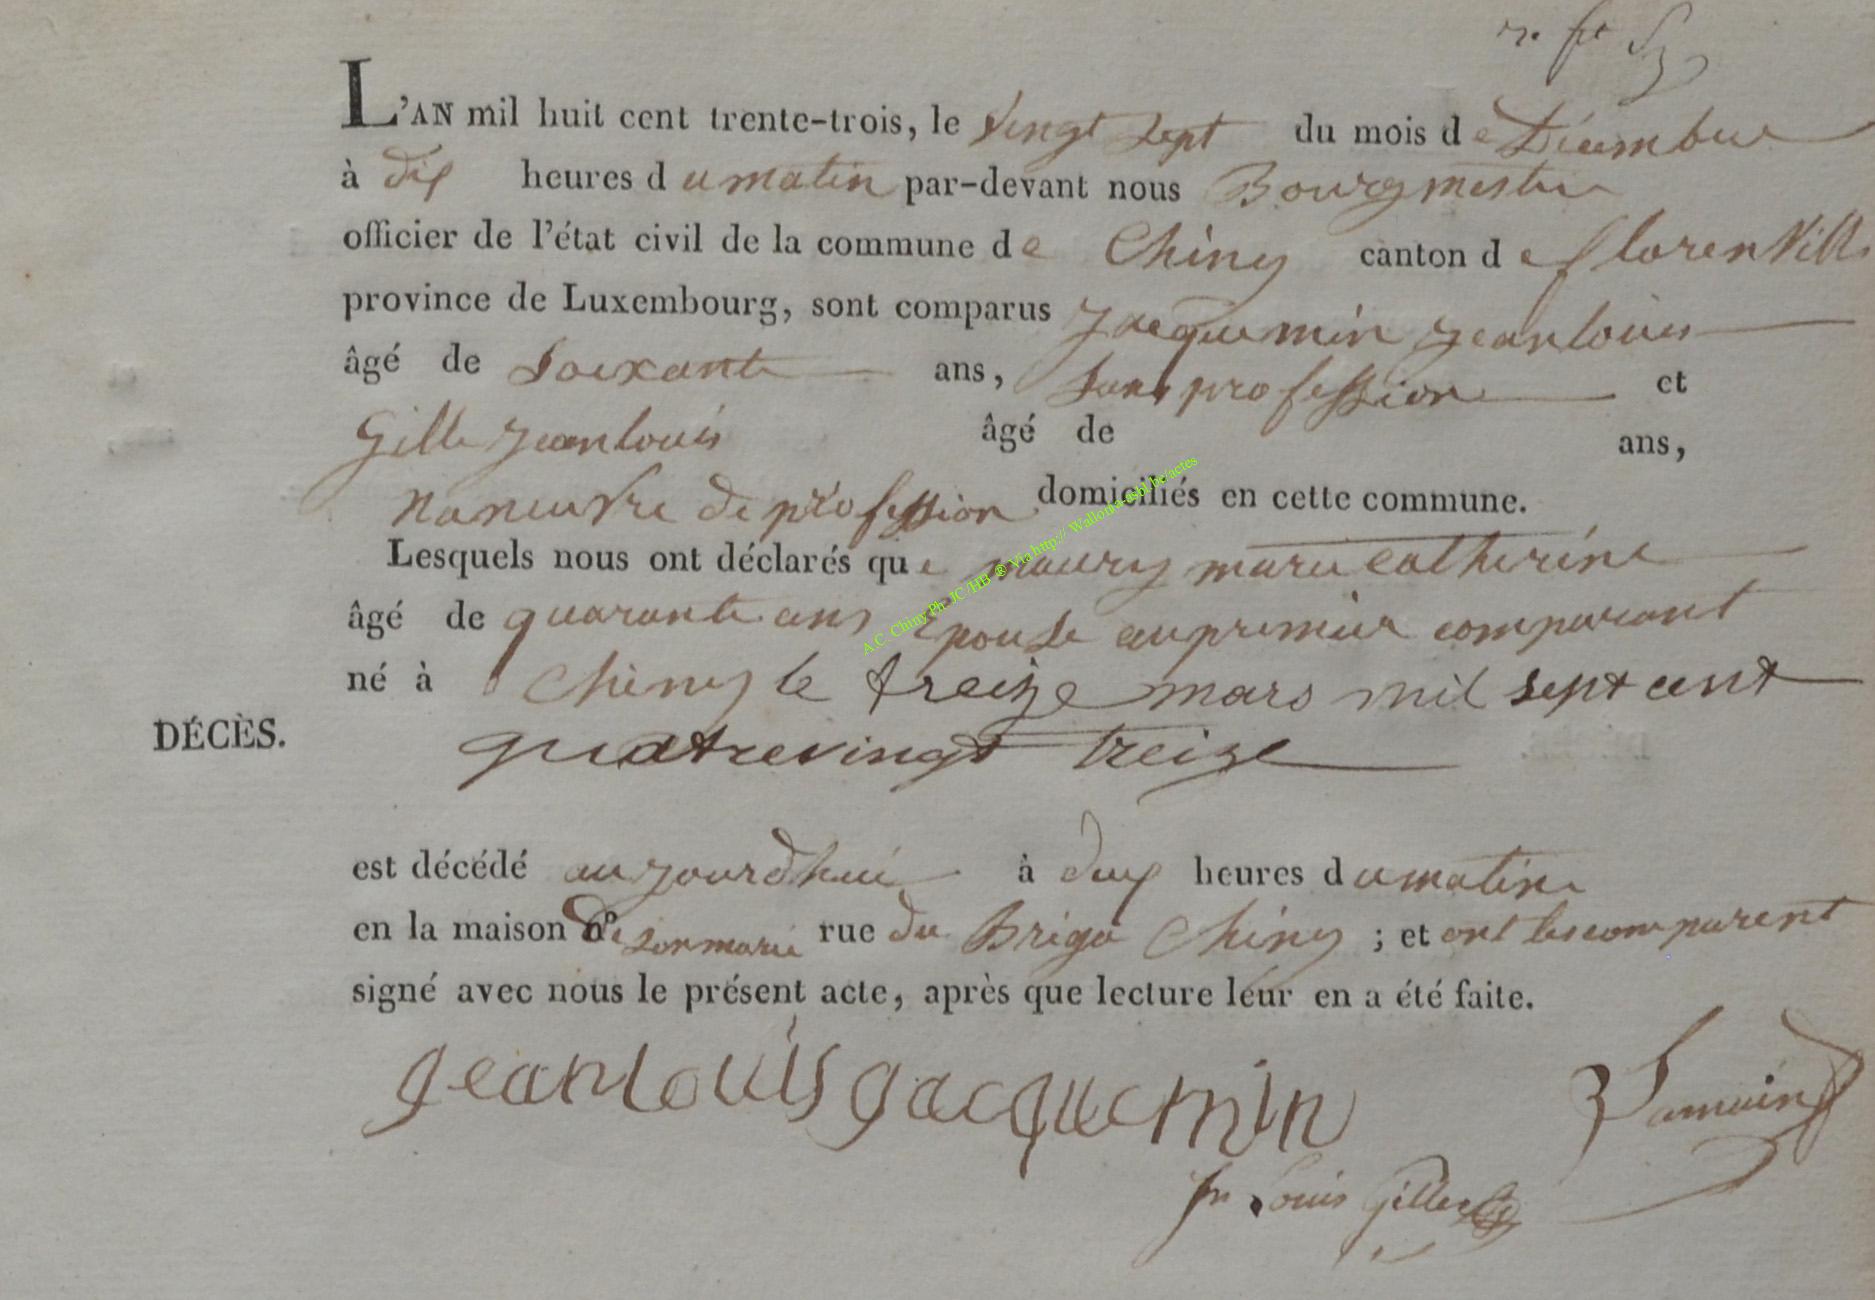 L'AN mil huit cent trente-trois, le vingt sept du mois de Décembre
à dix heures du matin par-devant nous Bourgmestre
officier de l'état civil de la commune de Chiny canton de florenville
province de Luxembourg, sont comparus Jacquemin jean louis
âgé de Soixante ans, Sans profession et
Gille jean louis âgé de ans,
de profession domiciliés en cette commune.
Lesquels nous ont déclarés que maury marie catherine
âgé de quarante ans Epouse au premier comparant
né à Chiny le treize mars mil sept cent
DÉCÈS.
quatrevingt treize
est décédé aujourdhui à deux heures du matin
en la maison de son mari rue du Briga Chiny ; et ont les comparent
signé avec nous le présent acte, après que lecture leur en a été faite.
Jean louis Jacquemin
Jn Louis Gille
A.C. Chiny Ph. JC /HB ® Via http:// Wallonia-asbl.be/actes